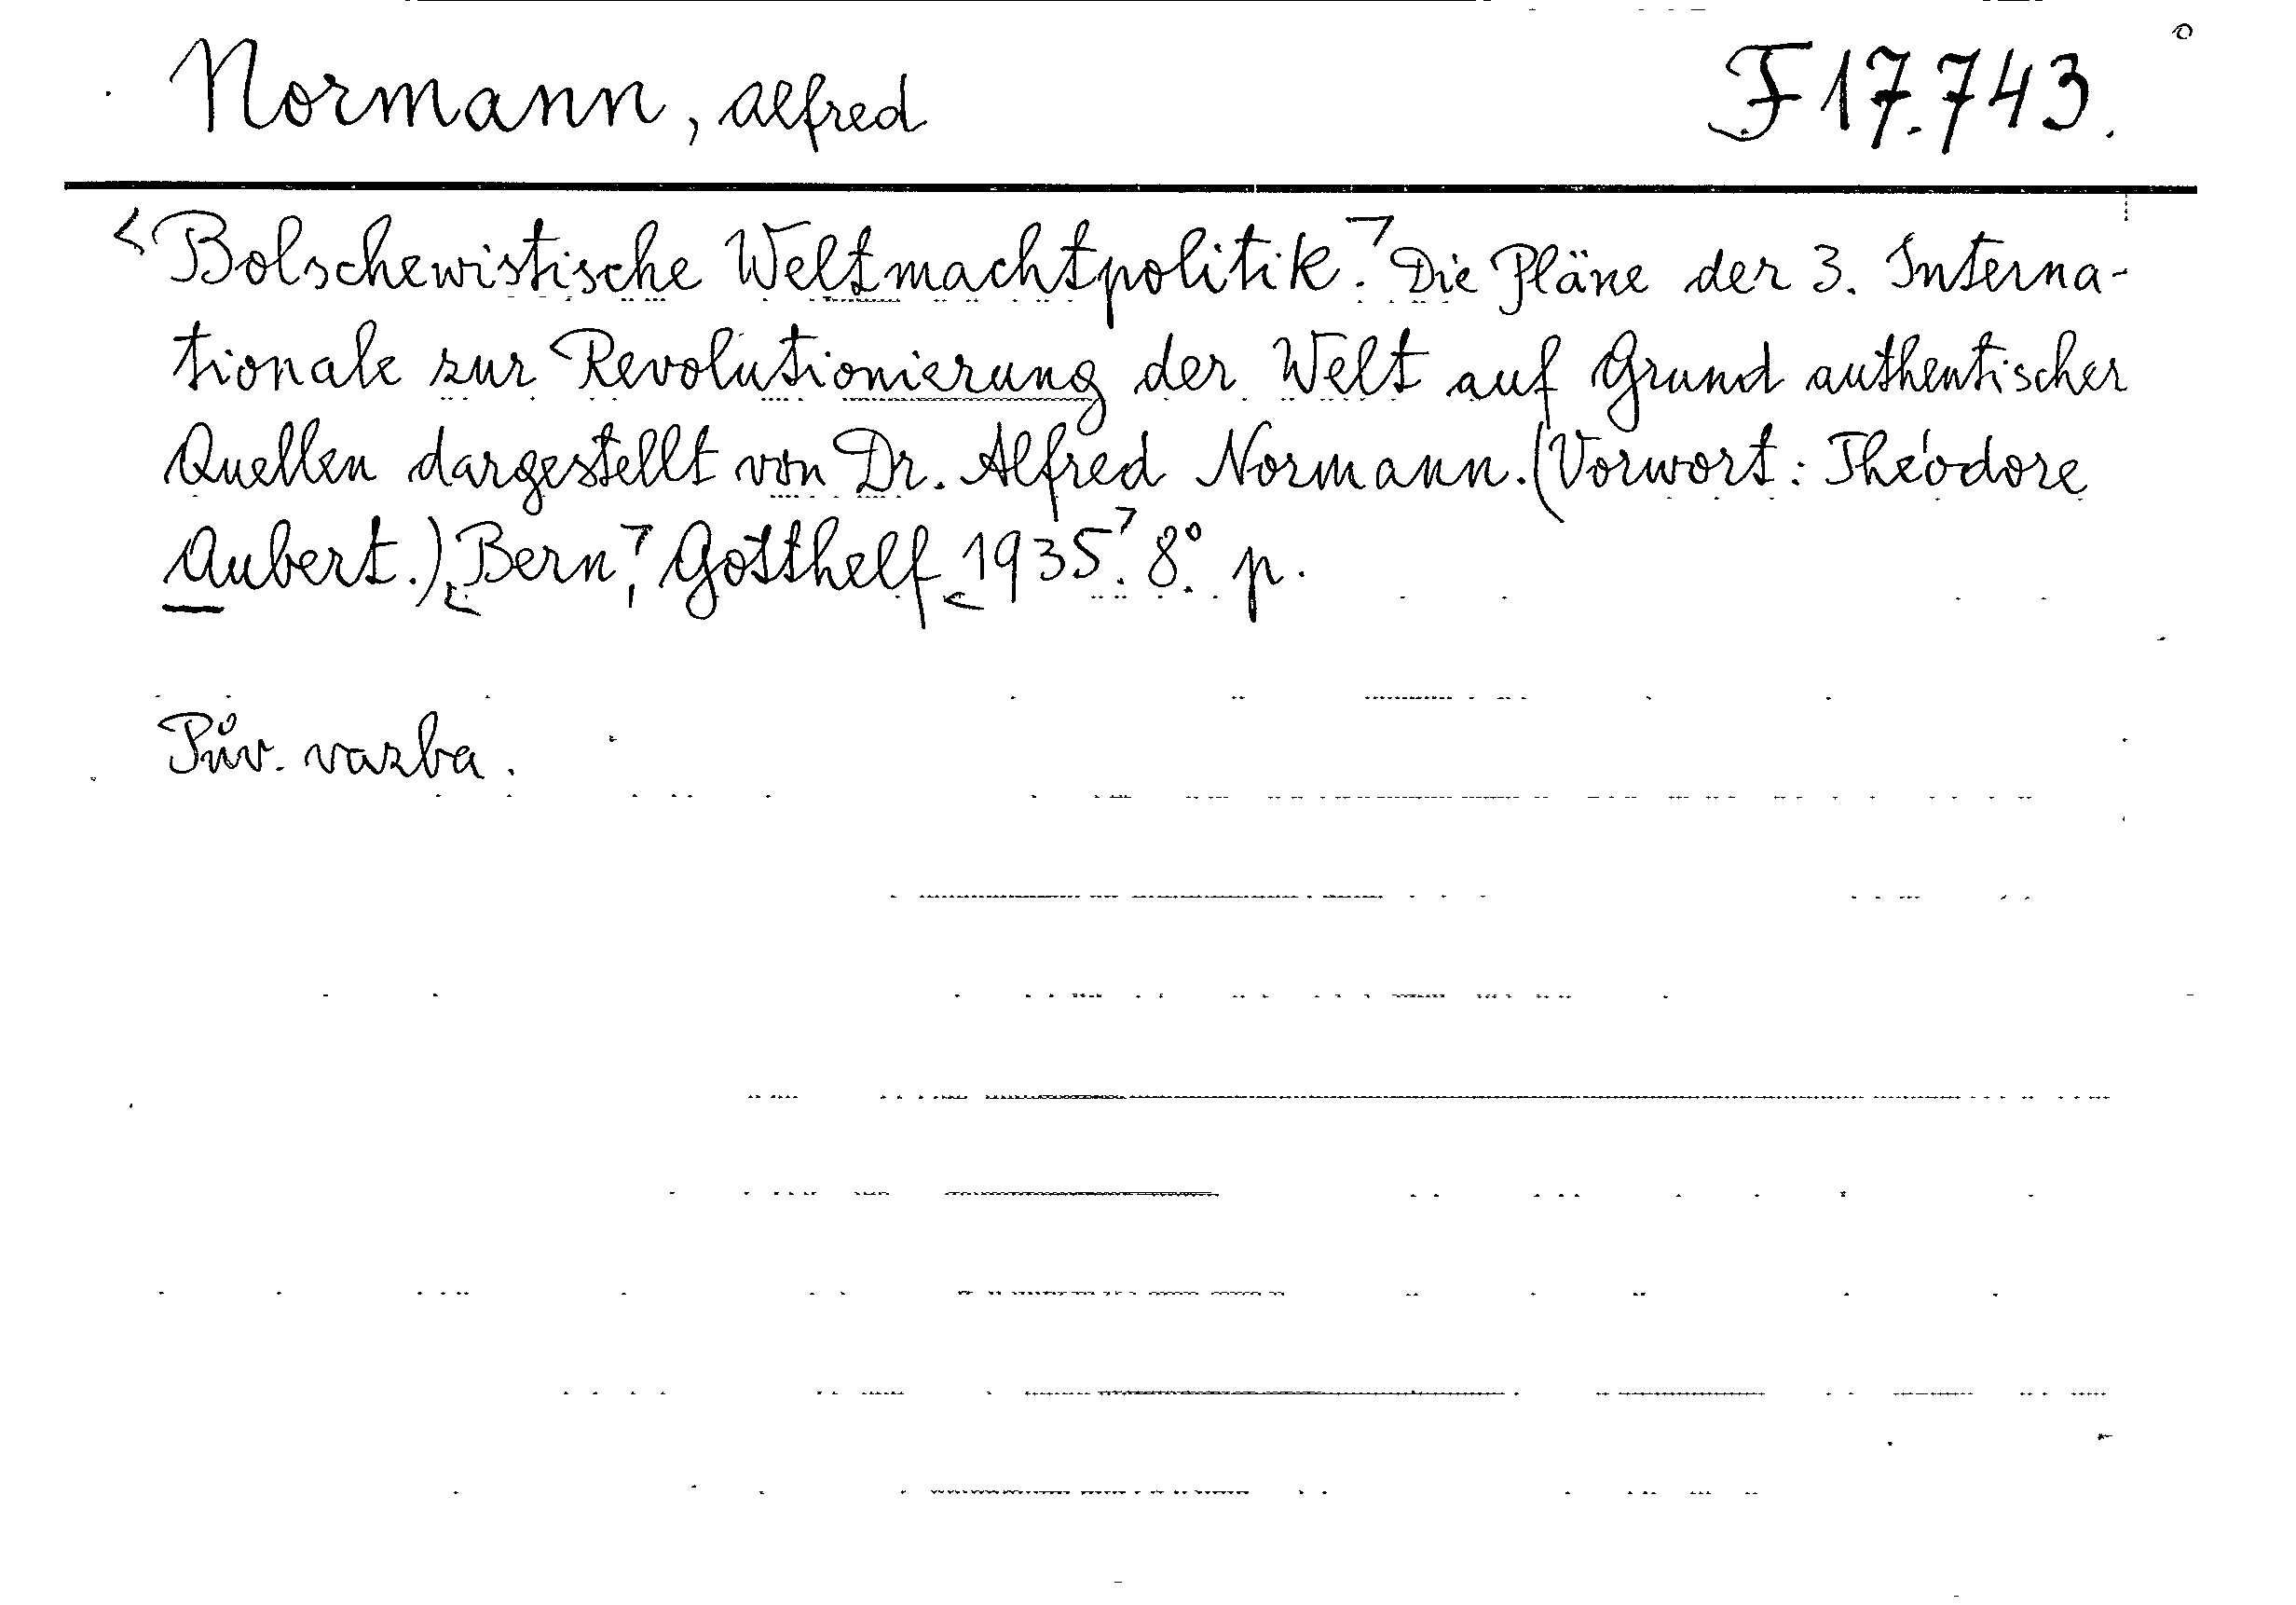 Normann, Alfred F 17.743.
<Bolschewistische Weltmachtpolitik.> Die Pläne der 3. Interna-
tionale zur Revolutionierung der Welt auf Grund authentischer
Quellen dargestellt von Dr. Alfred Normann. (Vorwort: Théodore
Aubert.) <Bern>, Gotthelf <1935>. 8° p.
Pův. vazba.